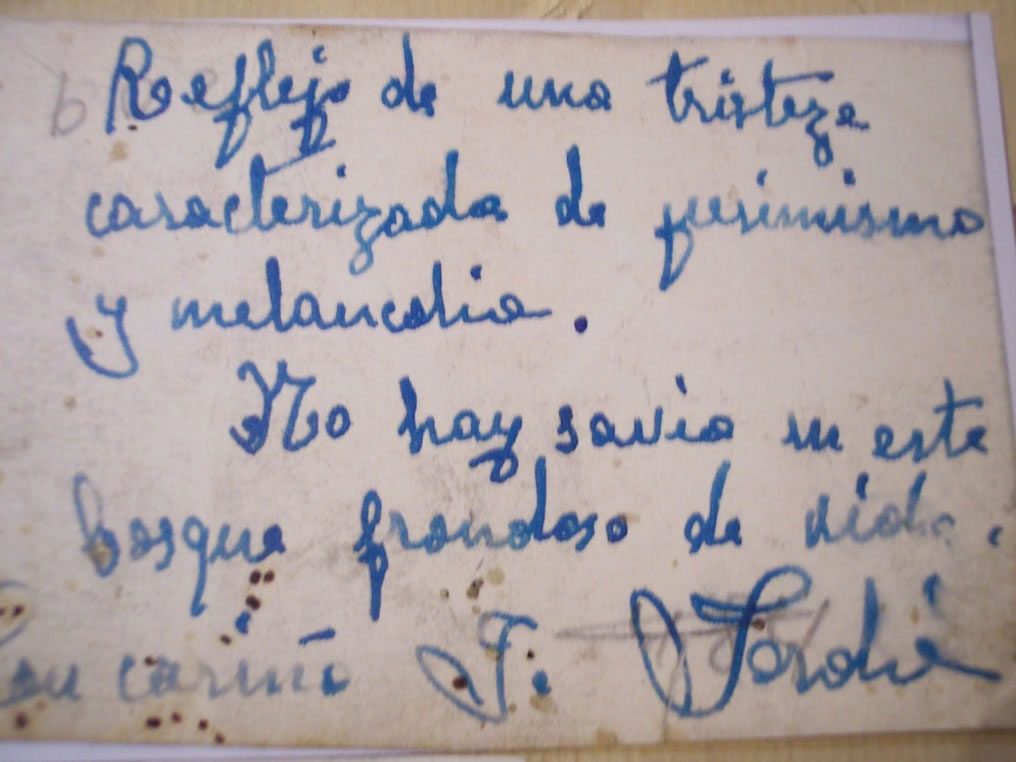 Reflejo de una tristeza
caracterizada de pesimismo
y melancolia.
No hay savia en este
bosque frondoso de vida.
Con cariño J.